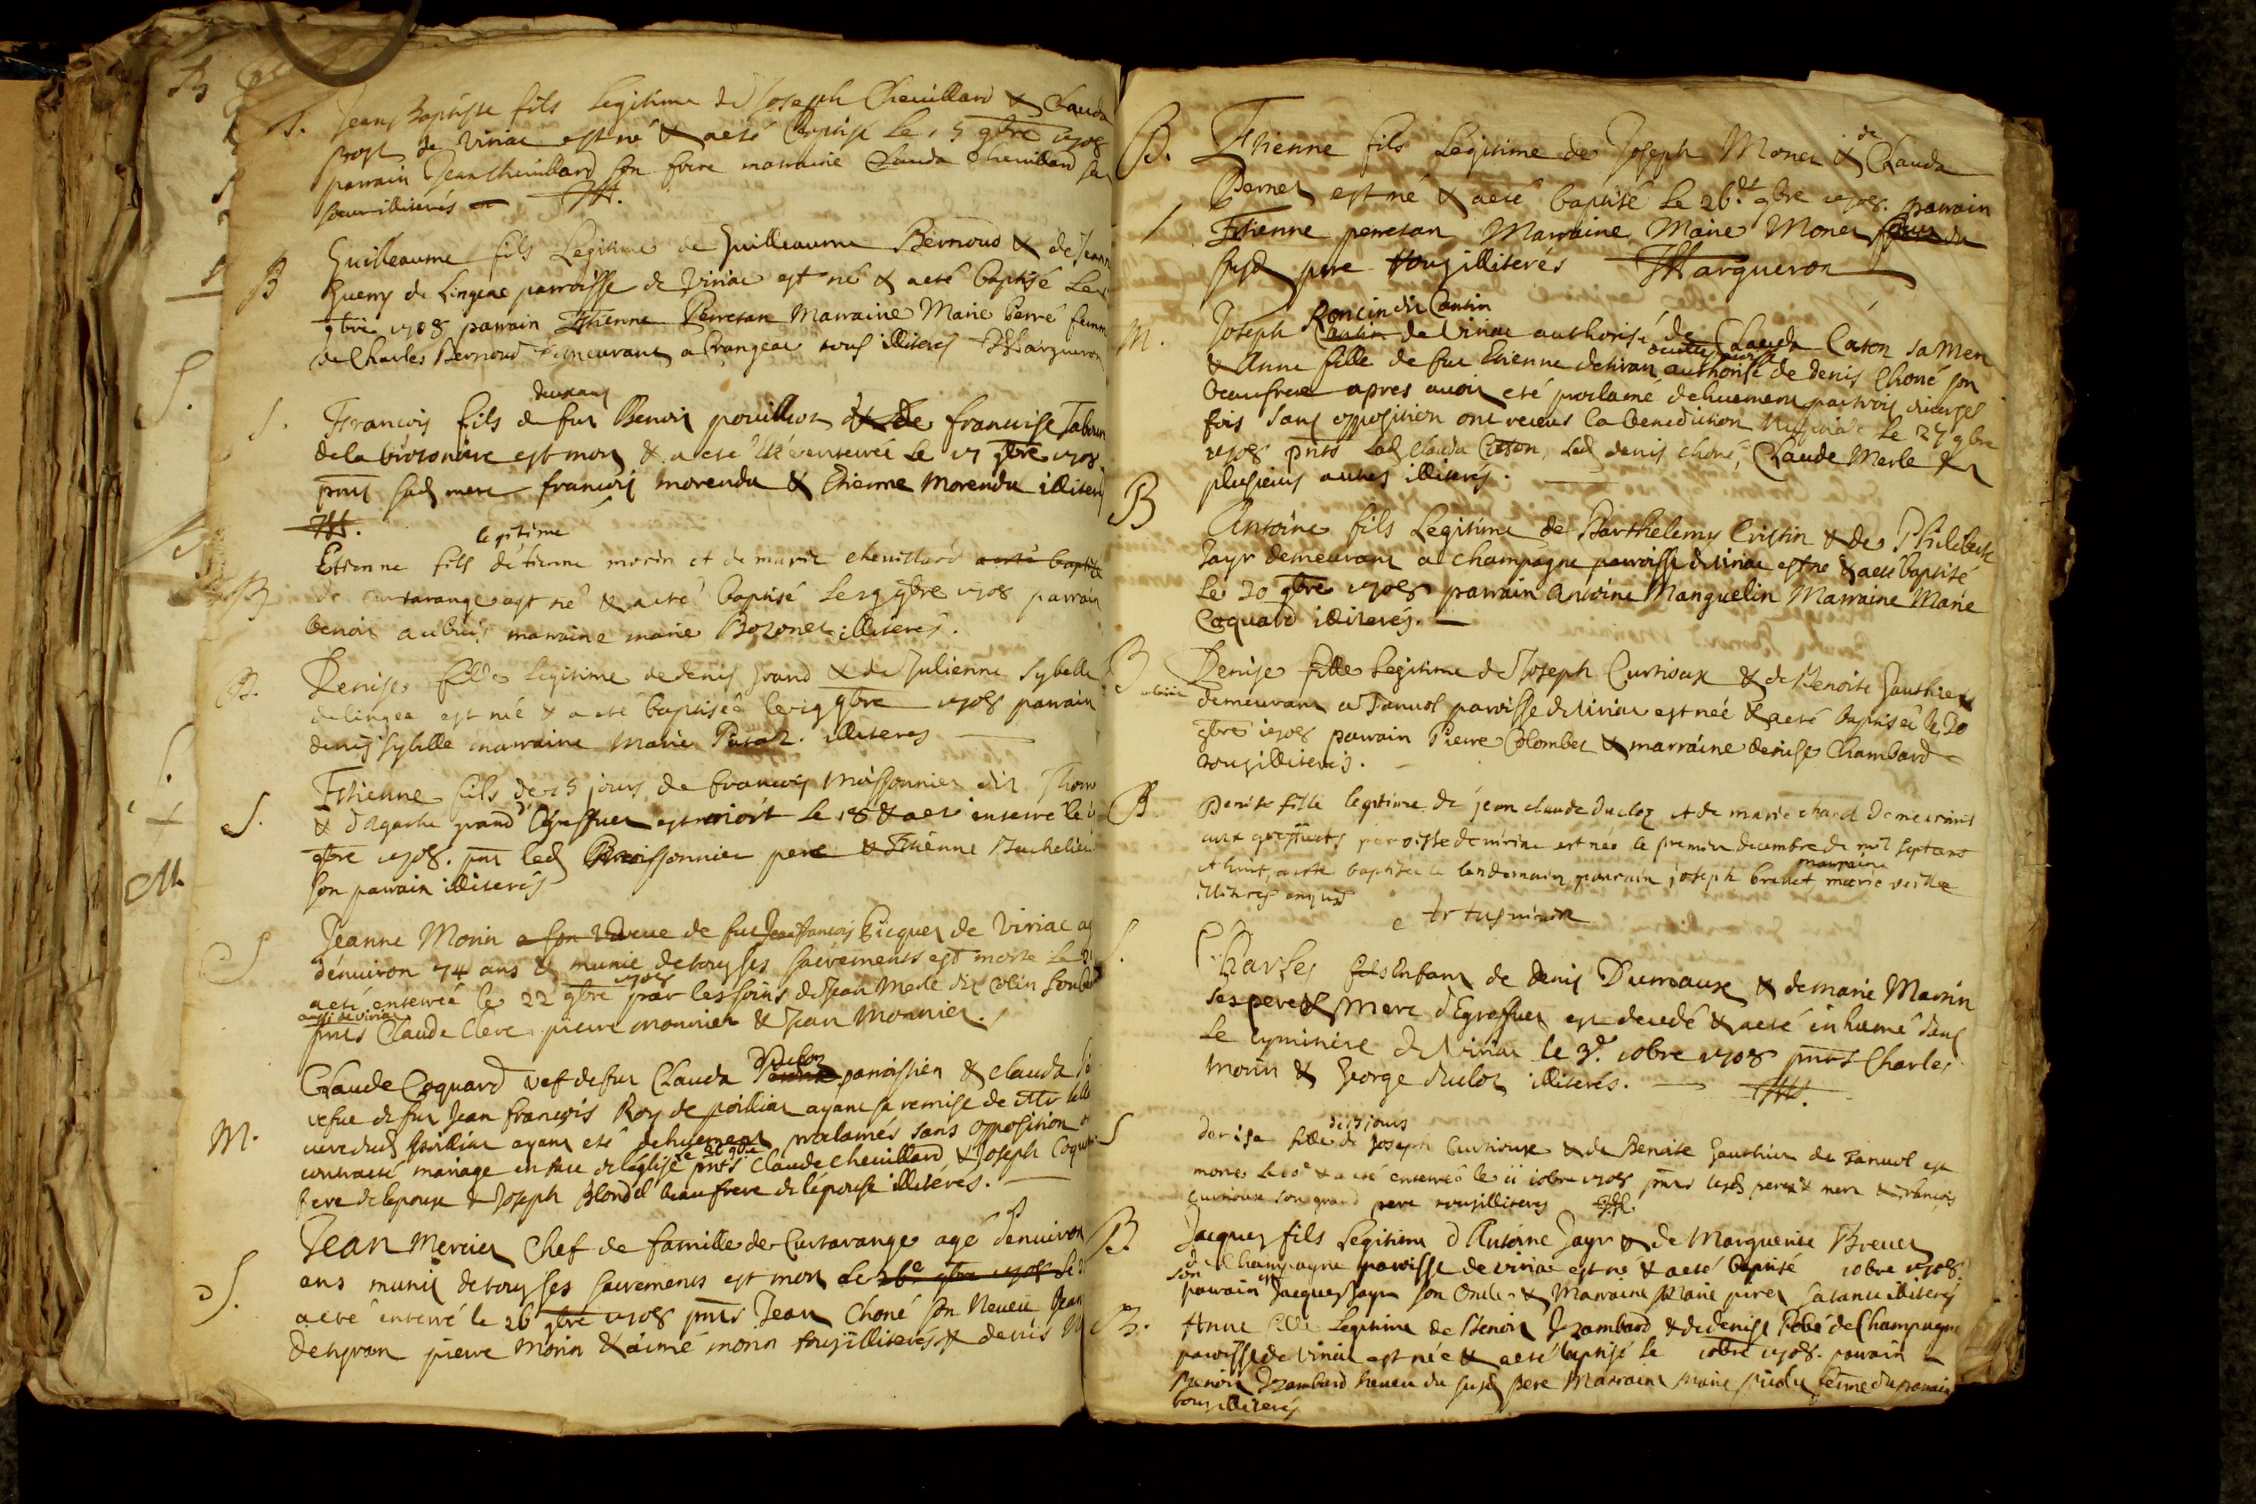 B. Jean Baptiste fils legitime de Joseph Chevillard & Clauda
prost de Viriac est né & a eté baptisé le 15 9bre 1708
parrain Jean Chevillard son frere marraine Clauda Chevillard sa
soeur illiterés
B Guilleaume fils Legitime de Guilleaume Bernoud & de Jeanne
Guerry de Lingeac parroisse de Viriac est né & a eté baptisé Le
9bre 1708 parrain Etienne Perretan Marraine Marie Perré femme
de Charles Bernoud demeurant a Crangeac tous illiteres JHargueron
S. Francois fils de feu Benoit pouillot & de francoise Tabouret
de la est mort & a eté enterré le 17 9bre 1708
pnts sad mere francois morendu & Etienne Morendu illiterés
legitime
B Etienne fils détienne morin et de marie chevillard a esté baptisé
de Curtarange est né & a eté baptisé le 19 9bre 1708 parrain
benoit marraine marie Bozonet illiterés.
B. Denise fille legitime de denis Grand & de Julienne Sybelle
de lingea est née & a eté baptiseé le 19 9bre 1708 parrain
denis Sybille marraine Marie illiteres
S. Etienne fils de 15 jours de francois Moissonnier dit Thom
& d'Agathe grand d'Egreffuet est mort le 18 & a eté enterré le
9bre 1708. pnt led Moissonnier pere & Etienne
son parrain illiterés
S Jeanne Morin veuve de feu Jean francois Picquet de Viriac
d'environ 74 ans & munie de tous ses sacrements est morte le
1708
a eté enterreé le 22 9bre par les soins de Jean Merle dit Colin
aussi de Viriac
pnts Claude Clerc pierre monnier & Jean Monnier.
duclos
Claude Coquard vef de feu Clauda parroissien & clauda
M. vefue de feu Jean francois Roy de poilliac ayant sa remise de Mr
curé dud Poilliac ayant eté dehuement proclamés sans opposition
contracté mariage en face de l'église le 26 9bre pnts Claude chevillard & Joseph Coquard
frere de lepoux & Joseph blondel beaufrere de l'épouse illiterés.
S. Jean Mercier Chef de famille de Curtarange agé denuiron
ans munis de tous ses sacrements est mort le 26e 9bre 1708
a eté enterré le 26 9bre 1708 pnts Jean Choné son Neueu Jean
detiran pierre Morin & aimé morin tous illiterés & denis
B. Etienne fils Legitime de Joseph Monet & de Clauda
Pernet est né & a eté baptisé le 26e 9bre 1708. parrain
Etienne perretan Marraine Marie Monet soeur du
susd pere tous illiterés JHargueron
Roncin dit Cantin
M. Joseph Cantin de Viriac authorisé de Clauda Caton sa Mere
& Anne fille de feu Etienne detiran authorisé de denis Choné son
beaufrere apres auoir eté proclamé dehuement par trois diuerses
fois sans opposition ont receus la benediction Nuptiale Le 27 9bre
1708 pnts lad Clauda Caton, led denis choné, Claude Merle &
plusieurs autres illiterés.
B Antoine fils Legitime de Barthelemy Cristin & de Philiberte
Jayr demeurant a Champagne parroisse de Viriac est né & a eté baptisé
Le 30 9bre 1708 parrain Antoine Manguelin Marraine Marie
Coquard illiterés.
B Denise fille Legitime de Joseph Curtioux & de Benoite Gauthier
demeurant a Tanuol parroisse de Viriac est née & a eté baptiseé le 30
9bre 1708 parrain Pierre Colombet & marraine denise Chambard
tous illiterés.
B. Benoite fille legitime de jean claude duclos et de marie chanel demeurant
aux greffiuets paroisse de viriac est née le premier decembre de mil sept cens
et huit, a esté baptisée le lendemain, parrain joseph brevet marraine marie veille
illitres enquis
S. Charles fils enfant de denis Dumaux & de marie Marrin
ses pere & mere d'Egreffuet est decedé & a eté inhumé dans
le cymitiere de Viriac le 3e. 10bre 1708 pnts Charles
Morin & George duclot illiterés.
de 13 jours
S denise fille de Joseph Curtioux & de Benoite Gauthier de Tanuol est
morte le 10e & a eté enterreé le 11 10bre 1708 pnts lesd pere & mere & francois
Curtioux son grand pere tous illiteres
B. Jacques fils Legitime d'Antoine Jayr & de Marguerite Brevet
de Champagne parroisse de viriac est né & a eté baptisé 10bre 1708.
son parrain est Jacques Jayr son Oncle & Marraine Marie piret sa tante illiterés
B. Anne fille Legitime de Benoit Jambard & de denise de Champagne
parroisse de Viriac est née & a eté baptisé le 10bre 1708. parrain
Benoit Jambard neueu du susd pere Marraine marie femme du parrain
tous illiterés